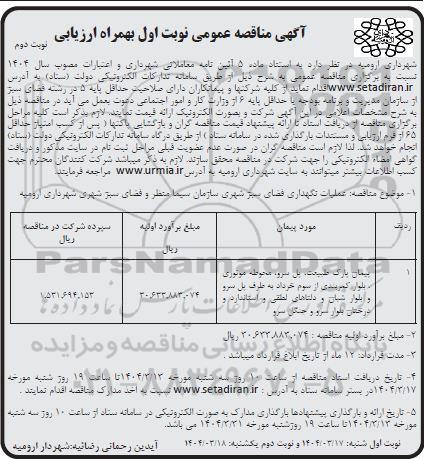 آگهی مناقصه عمومی نوبت اول بهمراه ارزیابی
نوبت دوم
شهرداری ارومیه در نظر دارد به استناد ماده ۵ آئین نامه معاملاتی شهرداری و اعتبارات مصوب سال ۱۴۰۴
نسبت به برگزاری مناقصه عمومی به شرح ذیل از طریق سامانه تدارکات الکترونیکی دولت (ستاد) به آدرس
www.setadiran.ir اقدام نماید از کلیه شرکتها و پیمانکاران دارای صلاحیت حداقل پایه ۵ در رشته فضای سبز
از سازمان مدیریت و برنامه بودجه یا حداقل پایه ۶ از وزارت کار و امور اجتماعی دعوت بعمل می آید در مناقصه ذیل
به شرح مشخصات اعلامی در این آگهی شرکت و بصورت الکترونیک ارائه قیمت نمایند. لازم بذکر است کلیه مراحل
برگزاری مناقصه از دریافت اسناد تا ارائه پیشنهاد قیمت مناقصه گران و بازگشایی پاکتها ( پس از کسب امتیاز حداقل
۶۵ از فرم ارزیابی و مستندات بارگذاری شده در سامانه ستاد ) از طریق درگاه سامانه تدارکات الکترونیکی دولت (ستاد)
انجام خواهد شد. لذا لازم است مناقصه گران در صورت عدم عضویت قبلی مراحل ثبت نام در سایت مذکور و دریافت
گواهی امضاء الکترونیکی را جهت شرکت در مناقصه محقق سازند. لازم به ذکر میباشد شرکت کنندگان محترم جهت
کسب اطلاعات بیشتر میتوانند به سایت شهرداری ارومیه به آدرس www.urmia.ir مراجعه فرمایند.
۱- موضوع مناقصه: عملیات نگهداری فضای سبز شهری سازمان سیما منظر و فضای سبز شهری شهرداری ارومیه
ردیف
مورد پیمان
مبلغ برآورد اولیه ریال
سپرده شرکت در مناقصه ریال
۱
پیمان پارک طبیعت، پل سرو، محوطه موتوری
، بلوار کمربندی از سوم خرداد به طرف پل سرو
و بلوار شبان و دلتاهای لطفی و استاندارد و
درختان بلوار سرو و جنگل سرو
۳۰.۶۳۳.۸۸۳.۰۷۴
۱.۵۳۱.۶۹۴.۱۵۳
۲- مبلغ برآورد اولیه مناقصه : ۳۰.۶۳۳.۸۸۳.۰۷۴ ریال
۳- مدت قرارداد: ۱۲ ماه از تاریخ ابلاغ قرارداد میباشد .
۴- تاریخ دریافت اسناد مناقصه از ساعت ۱۰ روز سه شنبه مورخه ۱۴۰۴/۳/۱۳ تا ساعت ۱۹ روز شنبه مورخه
۱۴۰۴/۳/۱۷ در بستر سامانه ستاد به آدرس : www.setadiran.ir نسبت به اخذ مدارک مناقصه اقدام نمایند .
۵- تاریخ ارائه و بارگذاری پیشنهادها بارگذاری مدارک به صورت الکترونیکی در سامانه ستاد از ساعت ۱۰ روز سه شنبه
مورخه ۱۴۰۴/۳/۱۳ تا ساعت ۱۹ روزشنبه مورخه ۱۴۰۴/۳/۳۱ می باشد.
نوبت اول شنبه: ۱۴۰۴/۰۳/۱۷ و نوبت دوم یکشنبه: ۱۴۰۴/۰۳/۱۸
آیدین رحمانی رضائیه:شهردار ارومیه
ParsNamadData
پایگاه اطلاع رسانی مناقصه و مزایده